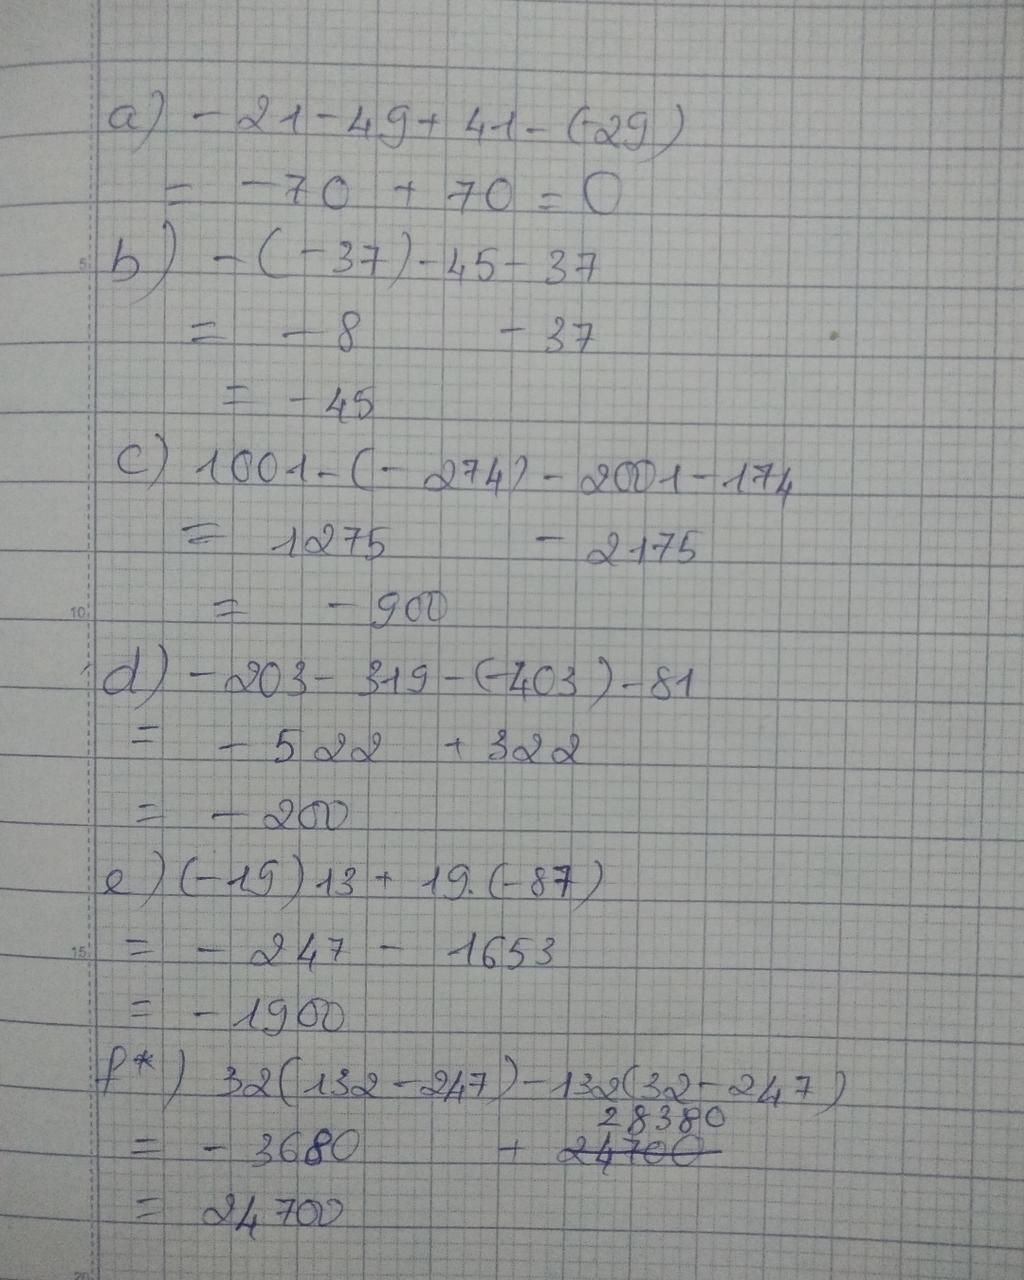 a) - 21 - 49 + 41 - (-29)
= - 70 + 70 = 0
b) - (-37) - 45 - 37
= - 8 - 37
= - 45
c) 1001 - (- 274) - 2001 - 174
= 1275 - 2175
= - 900
d) - 203 - 319 - (-403) - 81
= - 522 + 322
= - 200
e) (-19) 13 + 19. (-87)
= - 247 - 1653
= - 1900
f*) 32 (132 - 247) - 132 (32 - 247)
28380
= - 3680 + 24700
= 24700
5
10
15
20